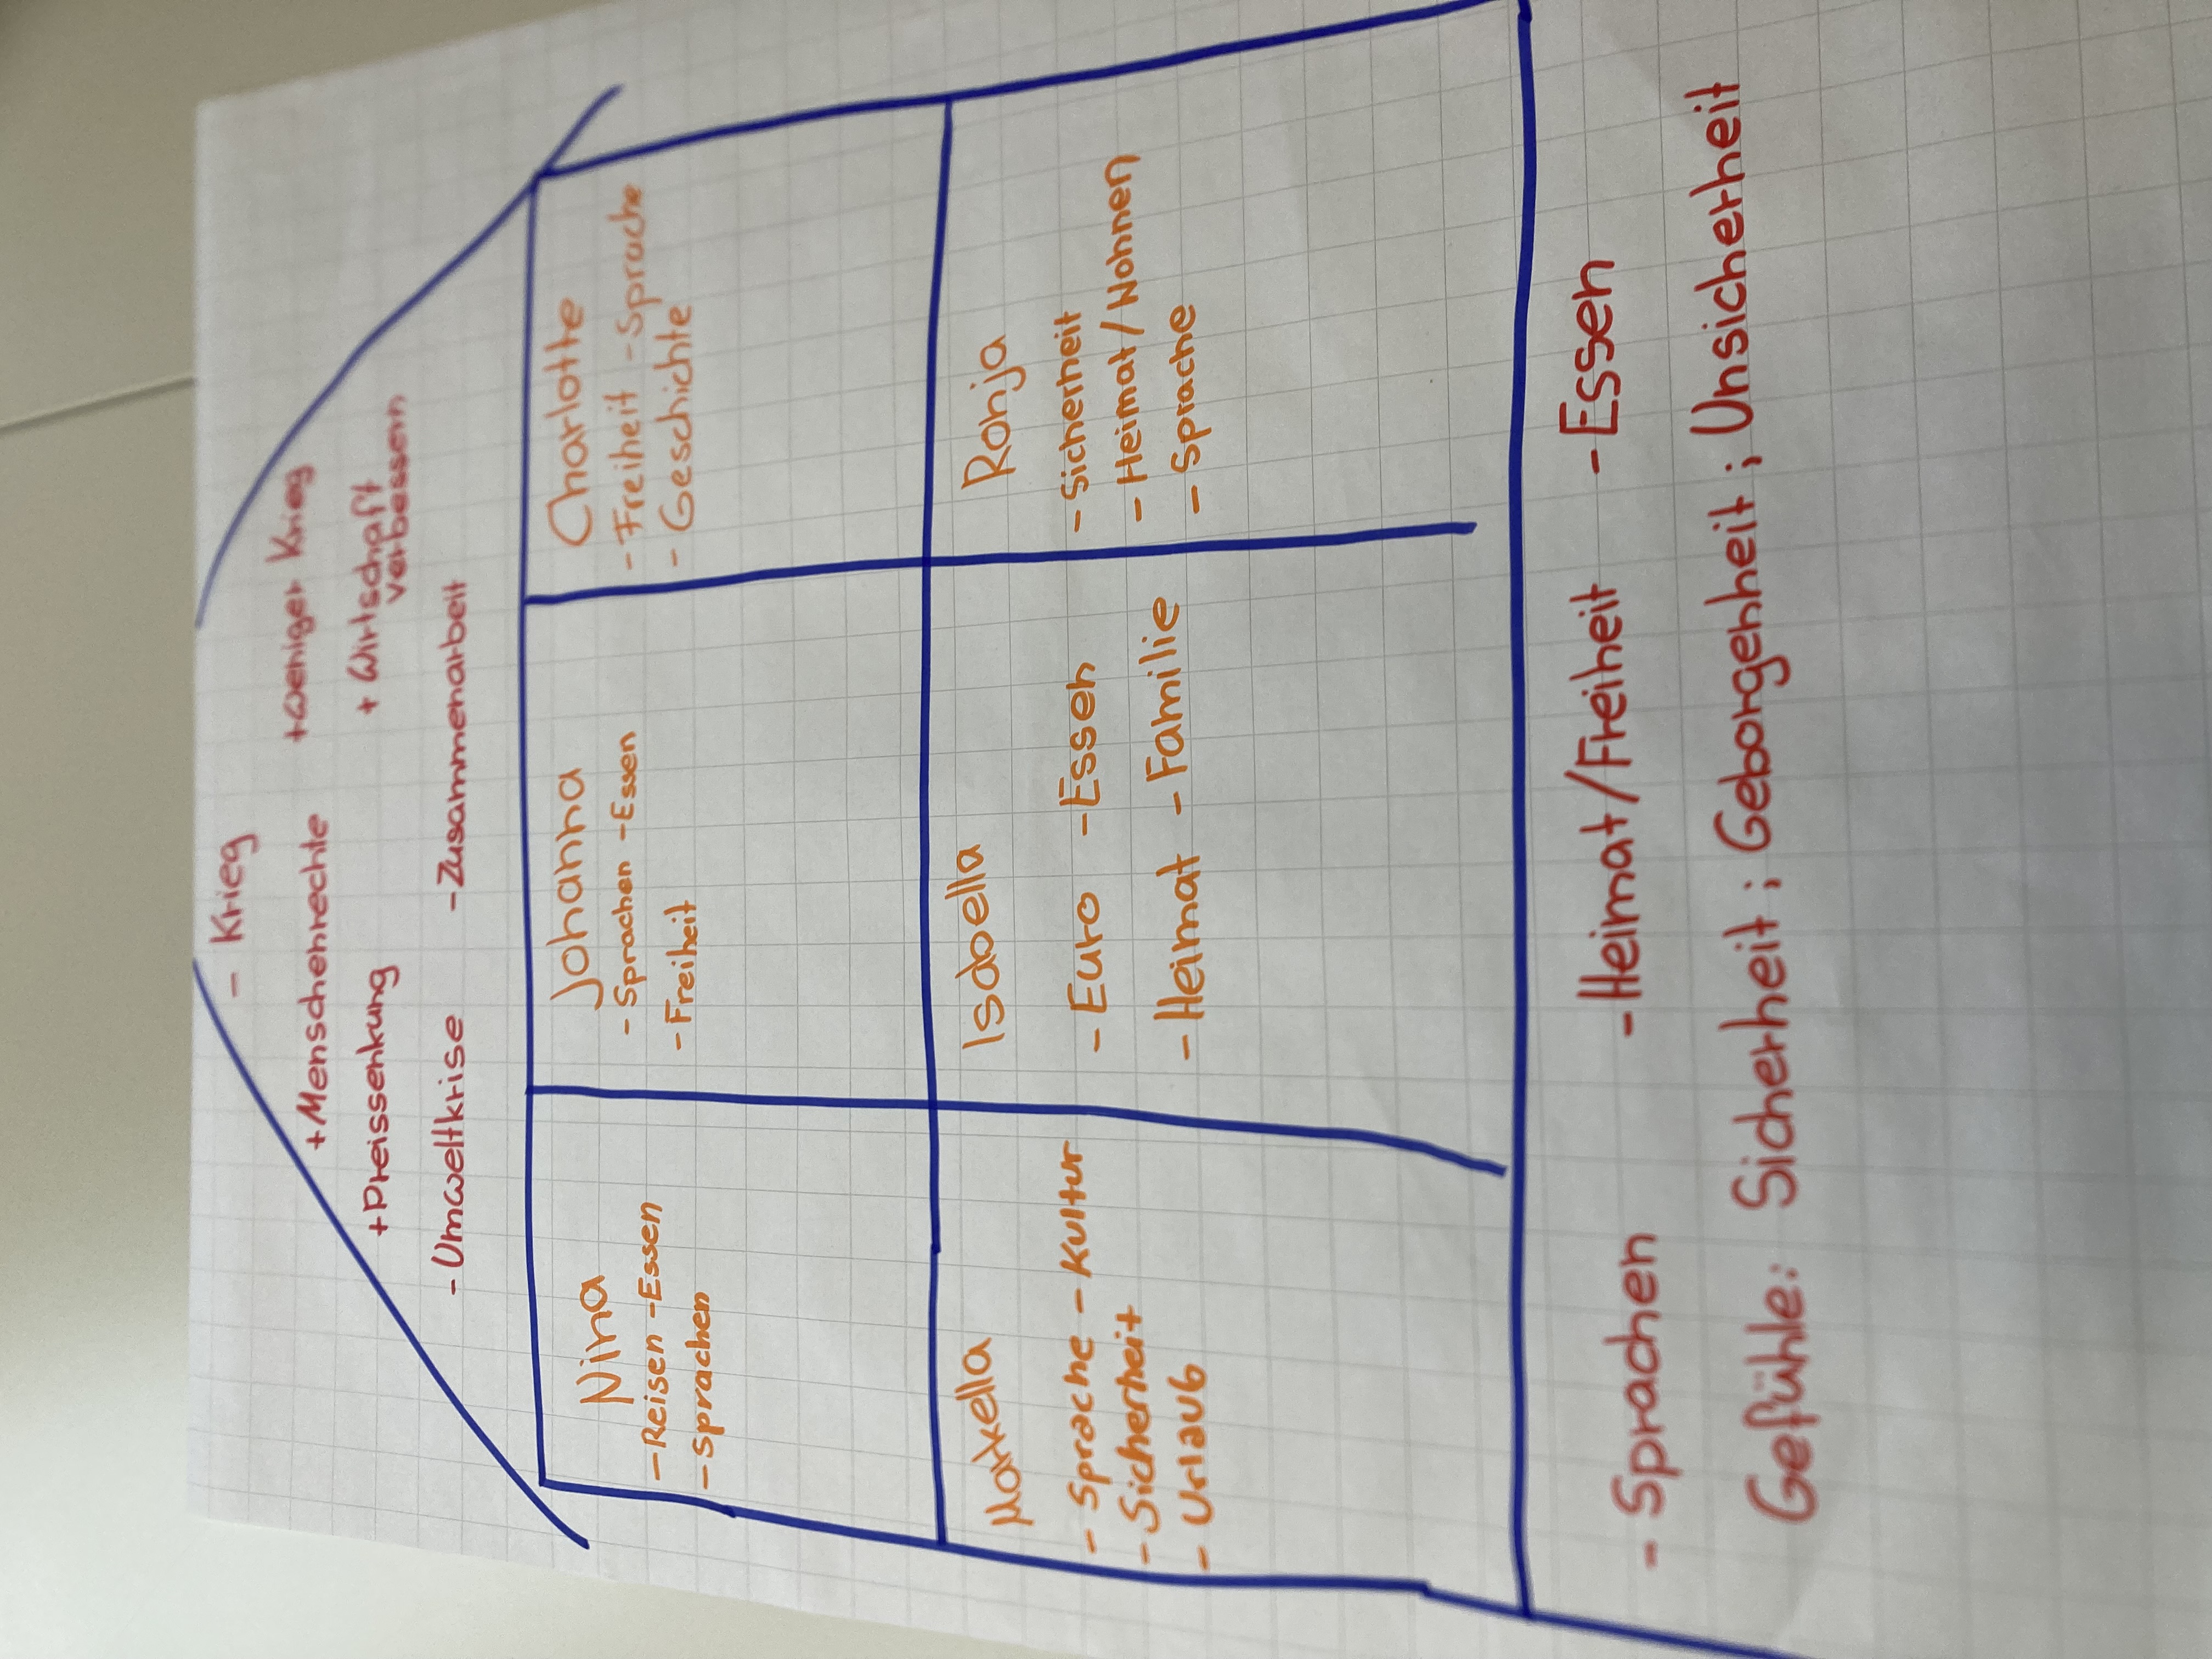 - Krieg
+ Menschenrechte + weniger Krieg
+ Preissenkung + Wirtschaft verbessern
- Umweltkrise - Zusammenarbeit
Nina
- Reisen - Essen
- Sprachen
Johanna
- Sprachen - Essen
- Freiheit
Charlotte
- Freiheit - Sprache
- Geschichte
Markella
- Sprache - Kultur
- Sicherheit
- Urlaub
Isabella
- Euro - Essen
- Heimat - Familie
Ronja
- Sicherheit
- Heimat/Wohnen
- Sprache
- Sprachen - Heimat/Freiheit - Essen
Gefühle: Sicherheit; Geborgenheit; Unsicherheit